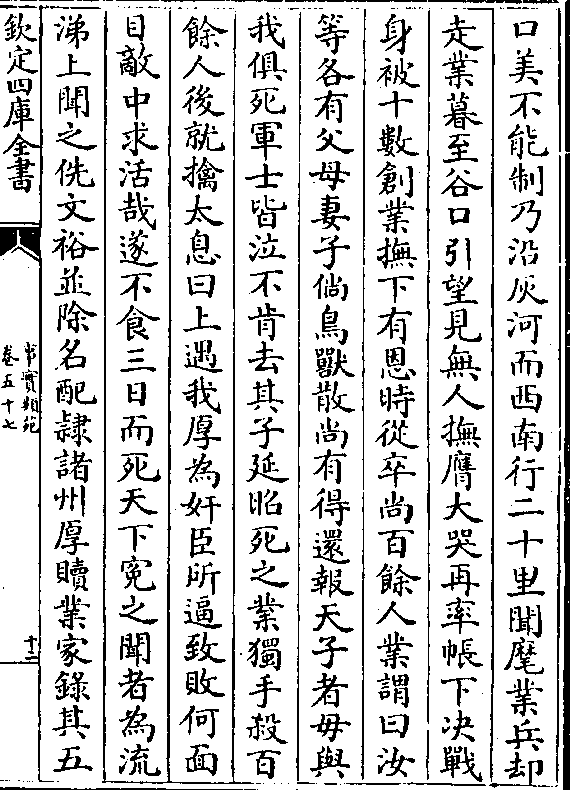 口美不能制乃沿灰河而西南行二十里聞麾業兵却
走業暮至谷口引望見無人撫膺大哭再率帳下決戰
身被十數創業撫下有恩時從卒尚百餘人業謂曰汝
等各有父母妻子倘鳥獸散尚有得還報天子者毋與
我俱死軍士皆泣不肯去其子延昭死之業獨手殺百
餘人後就擒太息曰上遇我厚為奸臣所逼致敗何面
目敵中求活哉遂不食三日而死天下寃之聞者為流
涕上聞之侁文裕並除名配隷諸州厚贖業家錄其五
欽定四庫全書
事實類苑
卷五十七
十二